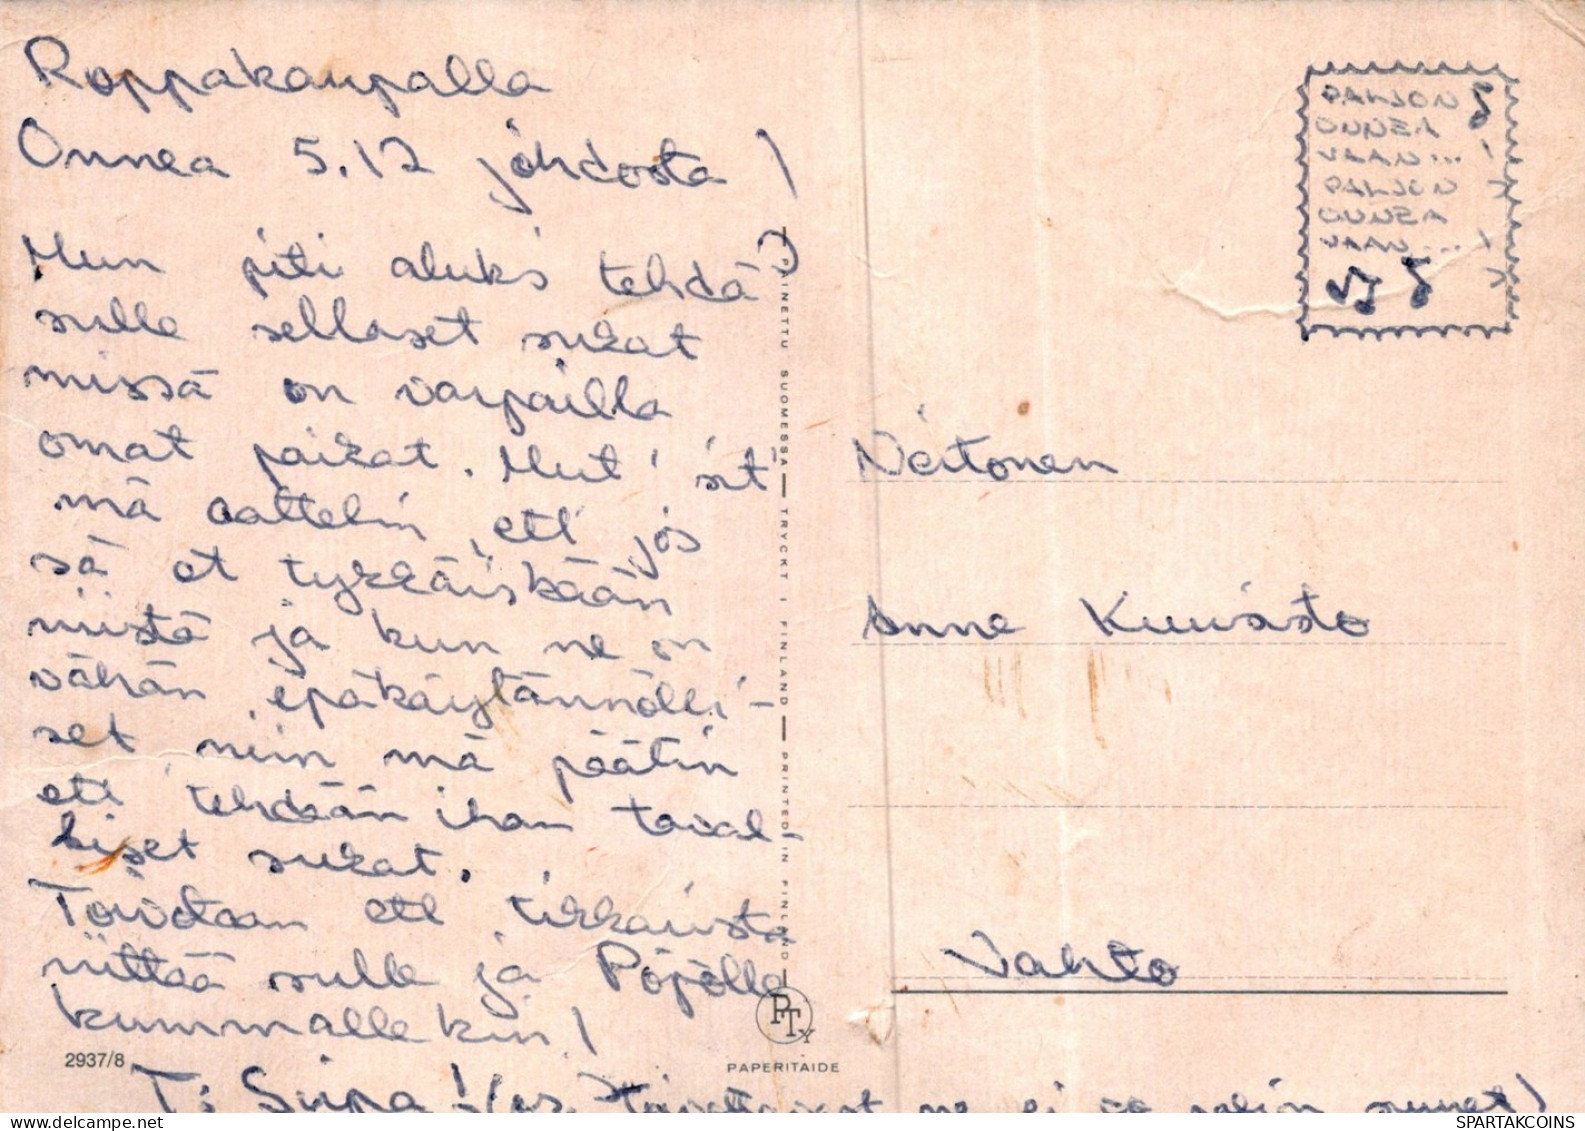 Roppakaupalla
Onnea 5.12 johdosta!
Mun piti aluks tehdä
sulle sellaset sukat
missä on varpailla
omat paikat. Mut' sit'
mä aattelin, ett' jos
sä et tykkäiskään
niistä ja kun ne on
vähän epäkäytännölli-
set, niin mä päätin
ett' tehdään ihan taval-
liset sukat.
Toivotaan ett' tikkaista
riittää sulle ja Pöpölle
kummallekin!
T: Siipa!
ne ei oo
PALJON
ONNEA
VAAN...!
PALJON
ONNEA
VAAN...!
Neitonen
Anne Kuuisto
Vahto
PAINETTU SUOMESSA — TRYCKT I FINLAND — PRINTED IN FINLAND
PTY
PAPERITAIDE
2937/8
SPARTAKCOINS